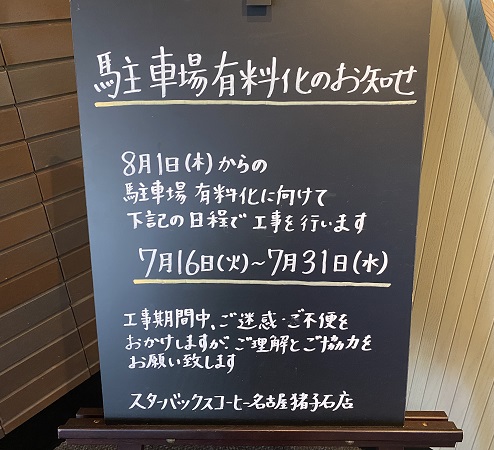 駐車場有料化のお知せ
8月1日(木)からの
駐車場 有料化に向けて
下記の日程で工事を行います
7月16日(火)~7月31日(水)
工事期間中、ご迷惑・ご不便を
おかけしますが、ご理解とご協力を
お願い致します
スターバックスコーヒー名古屋猪子石店